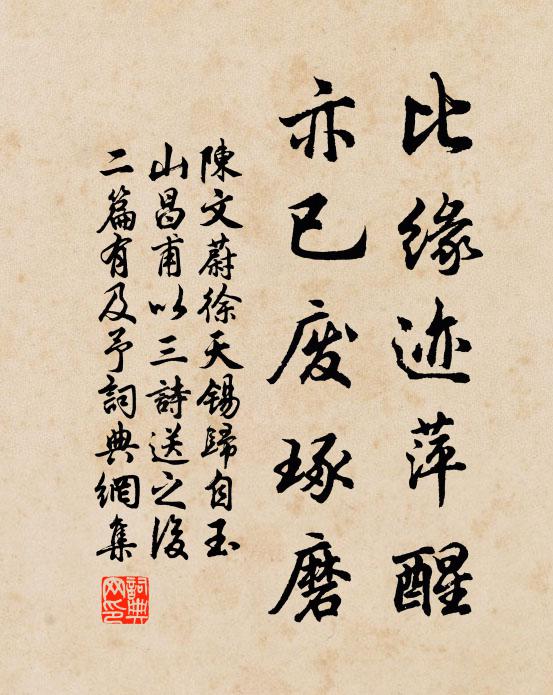 比緣迹萍醒
亦已废琢磨
陳文蔚徐天锡歸自玉
山昌甫以三詩送之後
二篇有及予詞典網集
詞典
网印